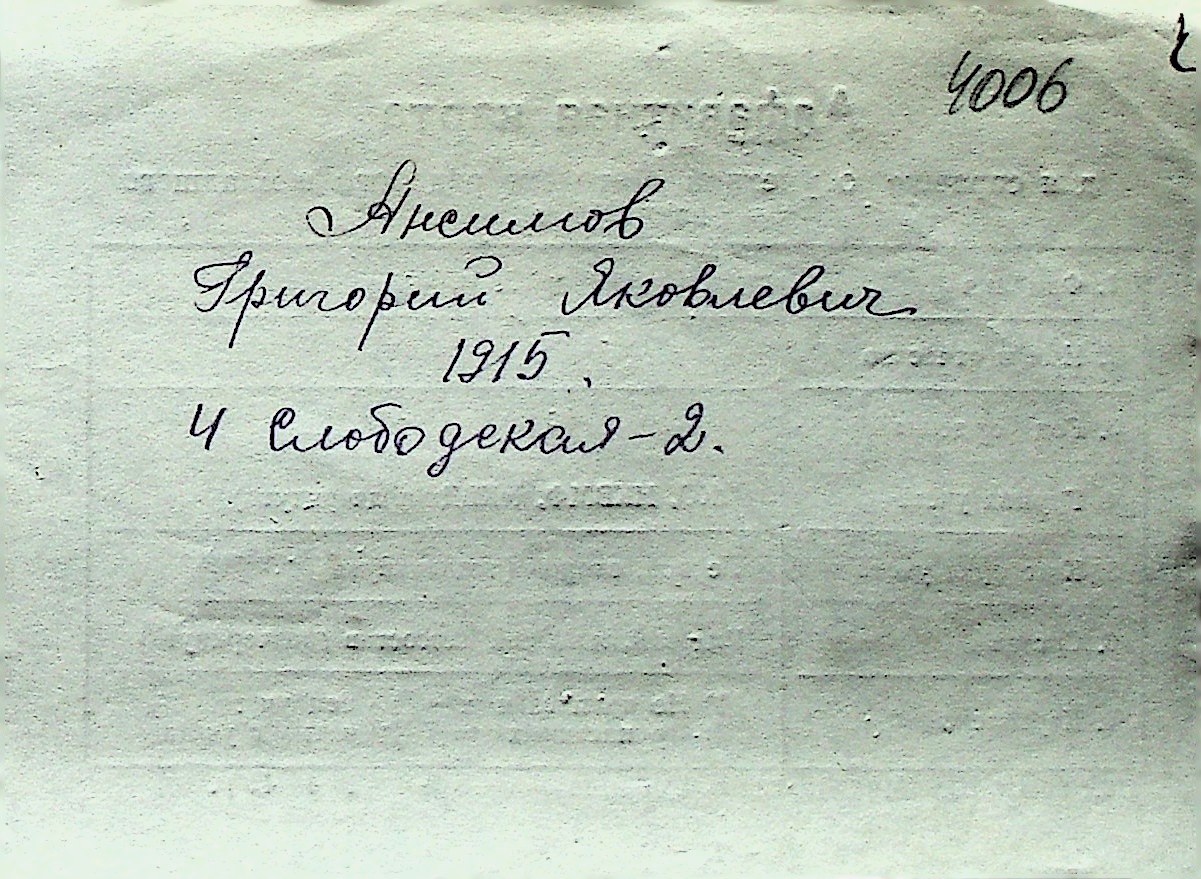 4006
Ансимов
Григорий Яковлевич
1915.
4 Слободская-2.